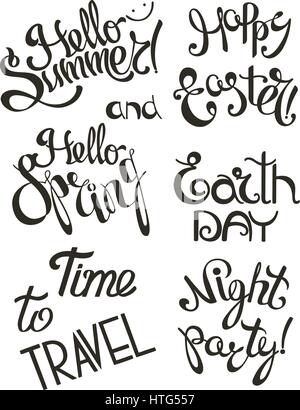 Hello
Summer!
and
Hello
Spring
Time
to
TRAVEL
Happy
Easter!
Earth
DAY
Night
party!
alamy
Image ID: HTG557
www.alamy.com